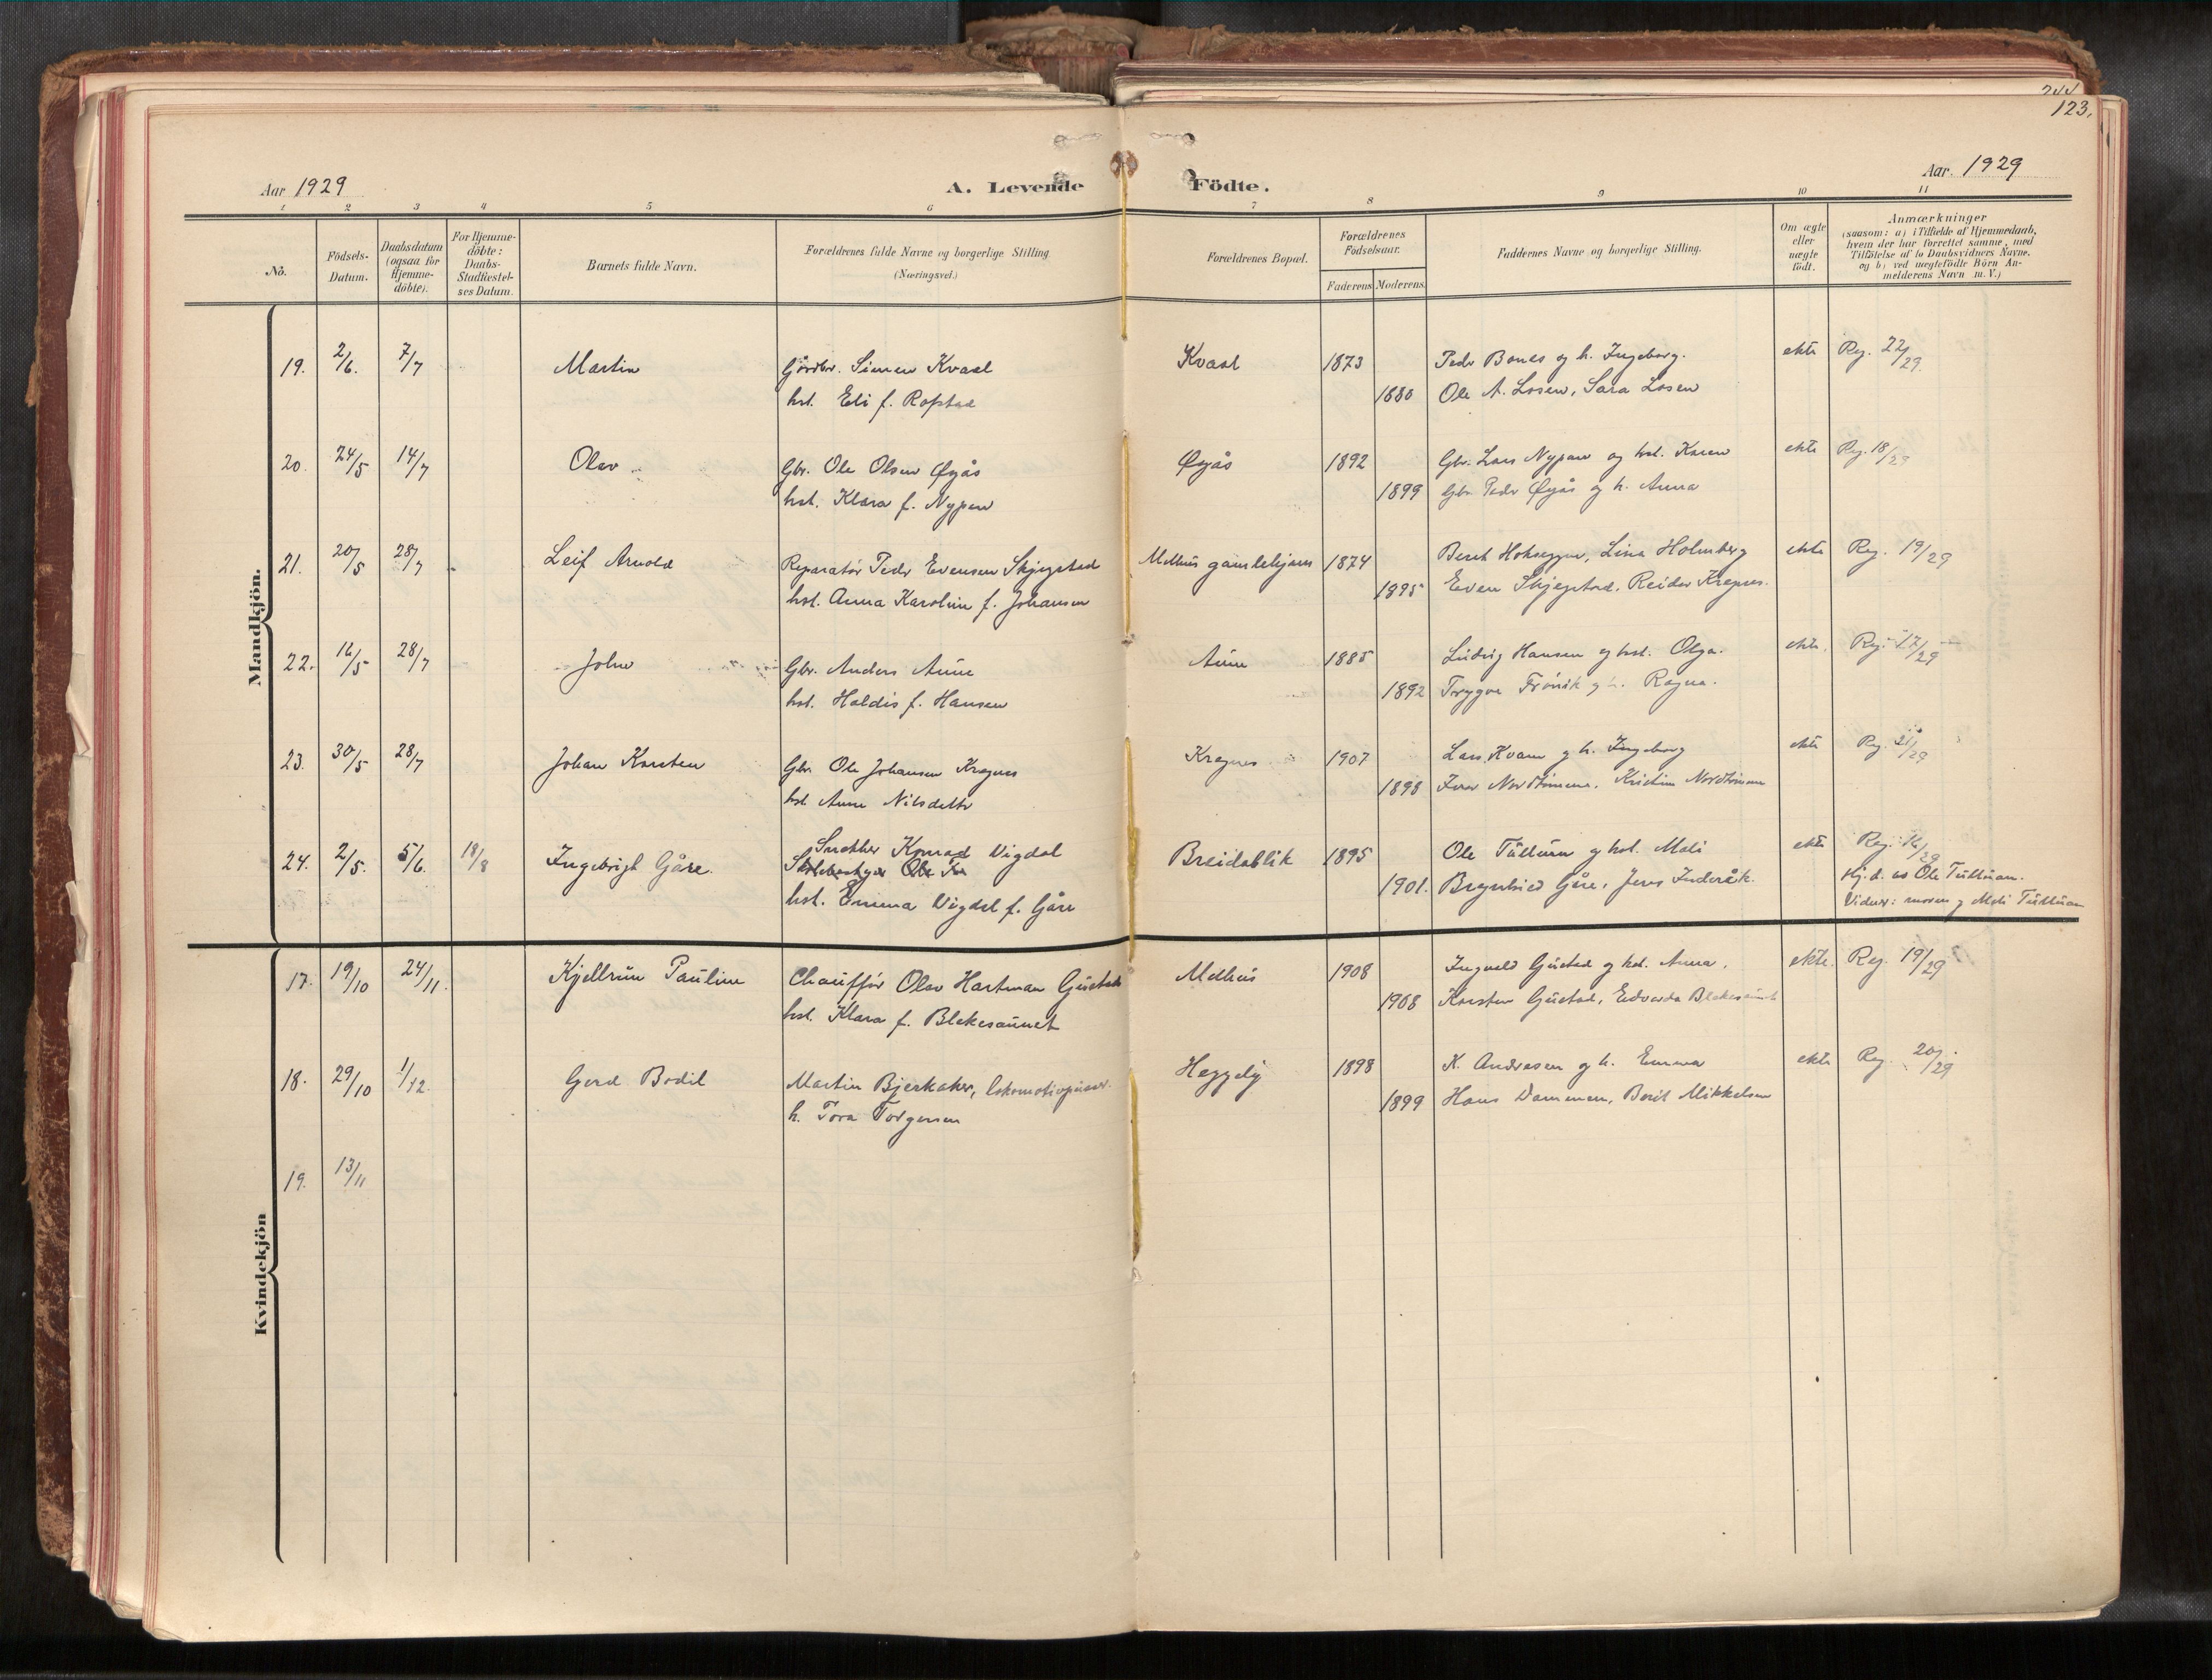 244
123.
Aar 1929
A. Levende Födte.
Aar. 1929
1 2 3 4 5 6 7 8 9 10 11
No.
Födsels-
Datum.
Daabsdatum
(ogsaa for
Hjemme-
döbte).
For Hjemme-
döbte:
Daabs-
Stadfæstel-
ses Datum.
Barnets fulde Navn.
Forældrenes fulde Navne og borgerlige Stilling
(Næringsvei.)
Forældrenes Bopæl.
Forældrenes
Födselsaar.
Faderens Moderens
Faddernes Navne og borgerlige Stilling.
Om ægte
eller
uægte
födt.
Anmærkninger
(saasom: a) i Tilfælde af Hjemmedaab,
hvem der har forrettet samme, med
Tilföielse af to Daabsvidners Navne,
og b) ved uægtefödte Börn An-
melderens Navn m. V.)
Mandkjön.
19. 2/6. 7/7 Martin Gårdbr. Simen Kvaal Kvaal 1873 Peder Bones og h. Ingeborg. ekte Reg. 22/29.
hst. Eli f. Rofstad 1880 Ole A. Losen, Sara Losen
20. 24/5 14/7 Olav Gbr. Ole Olsen Øyås Øyås 1892 Gbr. Lars Nypan og hst. Karen ekte Reg. 18/29
hst. Klara f. Nypan 1899 Gbr. Peder Øyås og h. Anna
21. 20/5 28/7 Leif Arnold Reparatør Peder Evensen Skjegstad Melhus gamlehjem 1874 Beret Hokseggen, Lina Holmberg ekte Reg. 19/29
hst. Anna Karoline f. Johansen 1895 Even Skjegstad, Reidar Kregnes.
22. 16/5 28/7 John Gbr. Anders Aune Aune 1885 Ludvig Hansen og hst. Olga. ekte. Reg. 17/29
hst. Haldis f. Hansen 1892 Trygve og h. Ragna.
23. 30/5 28/7 Johan Karsten Gbr. Ole Johansen Kregnes Kregnes 1907 Lars Kvam og h. Ingeborg ekte Reg. 21/29
hst. Anne Nilsdatter 1898 Nordtømme, Kristine Nordtømme
24. 2/5. 5/6. 18/8 Ingebrigt Gåre. Snekker Konrad Vigdal Breidablik 1895 Ole Tuttum og hst. Mali ekte Reg. 16/29
hst. Emma Vigdal f. Gåre 1901. Brynhild Gåre, Jens Inderåk. Hj.d. av Ole Tuttum.
Vidner: moren og Mali Tuttum
Kvindekjön
17. 19/10 24/11. Kjellrun Pauline Chauffør Olav Hartman Gustad Melhus 1908 Ingvald Gustad og hst. Anna. ekte. Reg. 19/29
hst. Klara f. Blekesaunet 1908 Karsten Gustad, Edvarda Blekesaunet
18. 29/10 1/12. Gerd Bodil Martin Bjerkaker, lokomotivpusser. Heggeli 1898 K. Andresen og h. Emma ekte Reg. 20/29
h. Tora Torgersen 1899 Hans Dammen, Berit Mikkelsen
19. 13/11